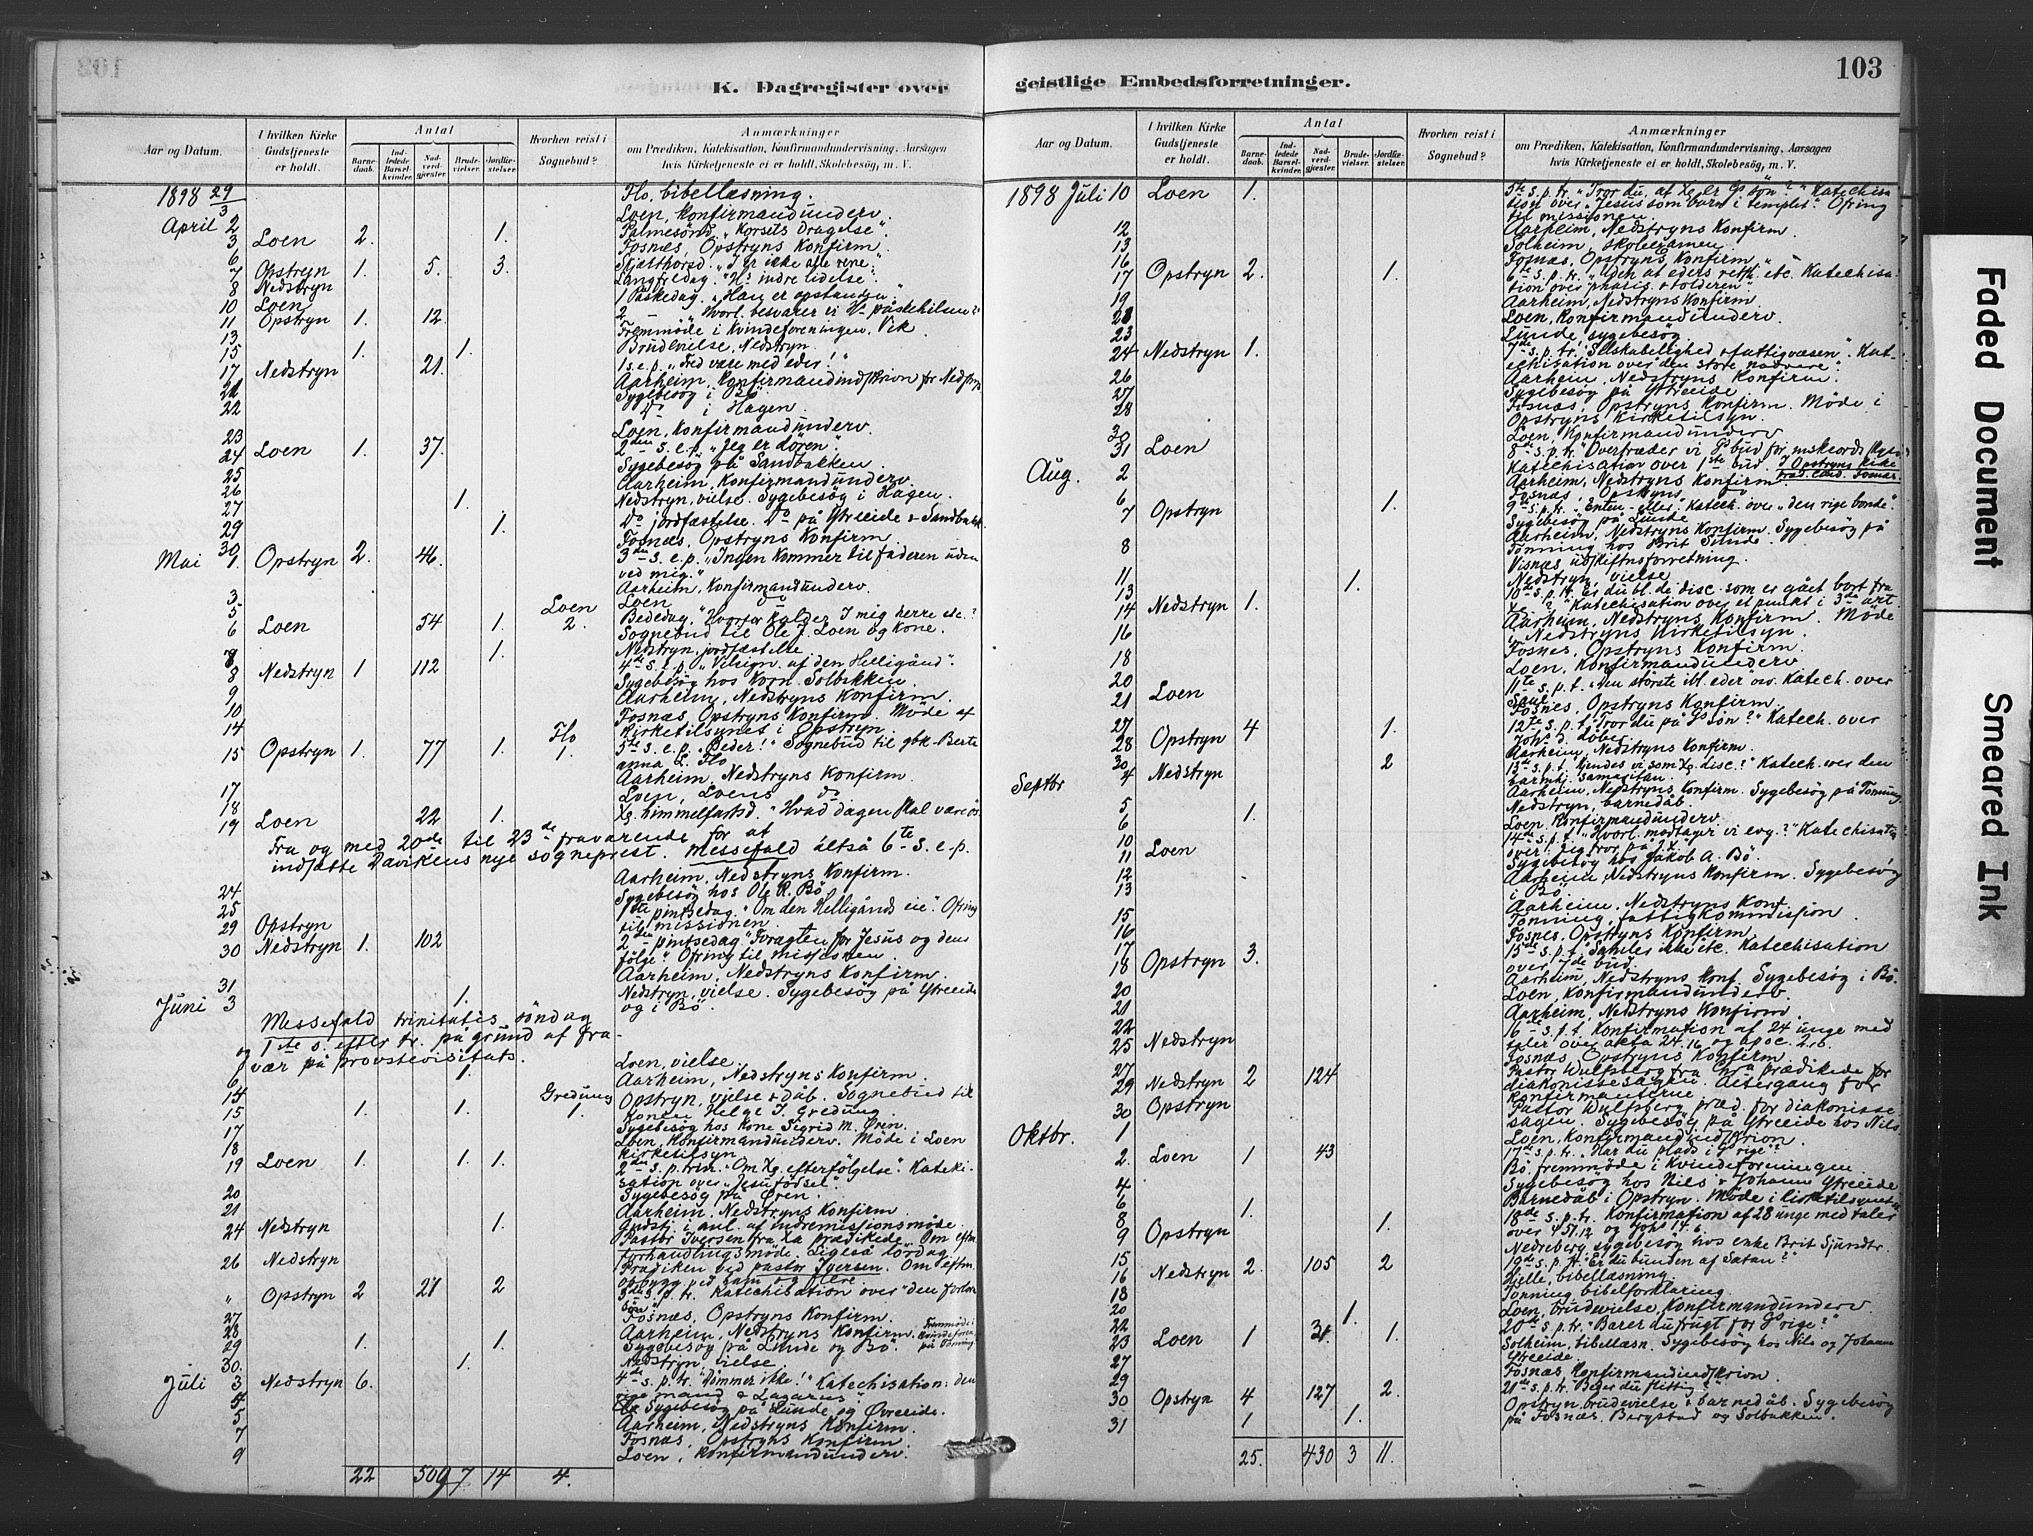 103
K. Dagregister over geistlige Embedsforretninger.
Aar og Datum.
I hvilken Kirke Gudstjeneste er holdt.
Antal
Barnedaab.
Indledede Barselkvinder.
Nadverdgjester.
Brudevielser.
Jordfæstelser.
Hvorhen reist i Sognebud?
Anmærkninger
om Prædiken, Katekisation, Konfirmandundervisning, Aarsagen
hvis Kirketjeneste ei er holdt, Skolebesøg, m. V.
1898 29/3 Flo, bibellæsning.
April 2 Loen, Konfirmandunderv.
3 Loen 2. 1. Palmesönd. "Korsets Dragelse".
6 Fosnæs, Opstryns Konfirm.
7 Opstryn 1. 5. 3. Skjærthorsd. "I er ikke alle rene".
8 Nedstryn Langfredag. indre lidelse".
10 Loen 1 Påskedag. "Han er opstanden".
11 Opstryn 1. 12. 2 - "Hvorl. besvarer vi påskehilsen?"
13 Fremmöde i Kvindeforeningen, Vik
15 1. 1. Brudevielse, Nedstryn.
17 Nedstryn 21. 1 s. e. p. "Fred være med eder!"
21 Aarheim, Konfirmandindskrivn for Nedstryn
22 Sygebesög i Bö
Do i Hagen.
23 Loen, Konfirmandunderv.
24 Loen 1. 37. 2den s. e. p. "Jeg er dören".
25 Sygebesög på Sandbakken.
26 Aarheim, Konfirmandunderv.
27 1. Nedstryn, vielse. Sygebesög i Hagen.
29 1. Do jordfæstelse. Do på Ytreeide & Sandbakk.
30 Fosnæs, Opstryns Konfirm
Mai 1. Opstryn 2. 46. 3die s. e. p. "Ingen kommer til faderen uden
ved mig."
3 Aarheim, Konfirmandunderv.
5 Loen do
6 Loen 54 1. Loen 2. Bededag, "Hvorfor kalder I mig herre etc.?
Sognebud til Ole J. Loen og Kone.
7 1. Nedstryn, jordfæstelse
8 Nedstryn 1 112 4de s. e. p. "Vilsign. af den Helligånd".
9 Sygebesög hos Korn. Solbakken.
10 Aarheim, Nedstryns Konfirm.
14 Fosnæs, Opstryns Konfirm. Möde af
Kirketilsynet i Opstryn.
15 Opstryn 1. 77 1. Flo 1. 5te s. e. p. "Beder!" Sognebud til gbk. Berte
anna E. Flo
17 Aarheim, Nedstryns Konfirm.
18 Loen, Loens do
19 Loen 22 1. Kr. himmelfartsd. "Hvad dagen skal være os
Fra og med 20de til 23de fraværende for at
indsætte Davikens nye sogneprest. Messefald altså 6te s. e. p.
24 Aarheim, Nedstryns Konfirm.
25 Sygebesög hos Ole R. Bö
29 Opstryn 1ste pintsedag. "Om den Helligånds eie". Ofring
til missionen.
30 Nedstryn 1. 102 2den pintsedag "Foragten for Jesus og dens
fölge". Ofring til missionen.
31 Aarheim, Nedstryns Konfirm.
Juni 3 1. Nedstryn, vielse. Sygebesög på Ytreeide
og i Bö.
Messefald trinitatis söndag
og 1ste s. efter tr. på grund af fra-
vær på provstevisitats.
6 1. Loen, vielse.
14 Aarheim, Nedstryns Konfirm.
15 1. 1. Gredung 1. Opstryn, vielse & dåb. Sognebud til
Konen Helge J. Gredung.
17 Sygebesög hos Kone Sigrid M. Ören.
18 Loen, Konfirmandunderv. Möde i Loen
Kirketilsyn
19 Loen 1. 1. 1. 2den s. p. trin. "Om Kr. efterfölgelse". Kateki-
sation over "Jesu födsel".
20 Sygebesög på Ören.
21 Aarheim, Nedstryns Konfirm
24 Nedstryn 1. Gudstj. i anl. af indremissionsmöde.
Pastor Iversen fra Xa prædikede. Om eftm
forhandlingsmöde. Ligeså lördag.
26 Nedstryn Prædiken ved pastor Iversen. Om eftm.
opbygg. ved ham og flere.
" Opstryn 2 21 2 3die s. p. tr. Katechisation over "den fortab
sön".
27 Fosnæs, Opstryns Konfirm.
28 Aarheim, Nedstryns Konfirm. Fremmöde i Kvindeforen. på Tonning
29 1. 1. Sygebesög på Lunde og Bö.
30. 1. Nedstryn, vielse.
Juli 3 Nedstryn 6. 4de s. p. tr. "Dömmer ikke!" Katechisation: den
rige mand & Lazarus"
4 Sygebesög på Lunde og Övreeide.
5 Aarheim, Nedstryns Konfirm.
7 Fosnæs, Opstryns Konfirm
9 Loen, Konfirmandunderv.
22 509 7 14 4.
Aar og Datum.
I hvilken Kirke Gudstjeneste er holdt.
Antal
Barnedaab.
Indledede Barselkvinder.
Nadverdgjester.
Brudevielser.
Jordfæstelser.
Hvorhen reist i Sognebud?
Anmærkninger
om Prædiken, Katekisation, Konfirmandundervisning, Aarsagen
hvis Kirketjeneste ei er holdt, Skolebesøg, m. V.
1898 Juli 10 Loen 1. 5te s. p. tr. "Tror du, at Kr. er Gs sön?" Katechisa
tion over "Jesus som barn i templet". Ofring
til missionen.
12 Aarheim, Nedstryns Konfirm.
13 Solheim, skoleexamen.
16 Fosnæs, Opstryns Konfirm
17 Opstryn 2. 1. 6te s. p. tr. "Uden at eders retf. etc. Katechisa-
tion over pharis. & tolderen".
19 Aarheim, Nedstryns Konfirm.
Loen, Konfirmandunderv.
23 Lunde, sygebesög
24 Nedstryn 1. 7de s. p. tr. "Selskabelighed & fattigvæsen". Kat-
echisation over den store nadvere".
26 Aarheim, Nedstryns Konfirm.
27 Sygebesög på Ytreeide
28 Fosnæs, Opstryns Konfirm. Möde i
Opstryns Kirketilsyn.
30 Loen, Konfirmandunderv
31 Loen 8de s. p. tr. "Overtræder vi Gs bud for mskords skyld
Katechisation over 1ste bud. I Opstryns Kirke
præd. cand. Fosnæs.
Aug. 2 Aarheim, Nedstryns Konfirm
6 Fosnæs, Opstryns
7 Opstryn 1. 9de s. p. tr. "Enten-eller". Katech. over "den rige bonde".
Sygebesög på Lunde
8 Aarheim, Nedstryns Konfirm. Sygebesög på
Tonning hos Brit Sunde.
Visnæs udskiftnsforretning.
11 1. Nedstryn, vielse
13
14 Nedstryn 1. 10de s. p. tr. "Er du bl. de disc. som er gået bort fra
Kr.?" Katechisation over et punkt i 3die art.
16 Aarheim, Nedstryns Konfirm. Möde
i Nedstryns Kirketilsyn.
18 Fosnes, Opstryns Konfirm.
20 Loen, Konfirmandunderv
21 Loen 11te s. p. t. "Den störste ibl. eder osv. Katech. over
Saul
27 Fosnes, Opstryns Konfirm.
28 Opstryn 4 1. 12te s. p. t. "Tror du på Gs sön?" Katech. over
Johs d. döber
30 2 Aarheim, Nedstryns Konfirm.
Septbr 4 Nedstryn 13de s. p. t. "Kjendes vi som Kr. disc.?" Katech. over den
barmhj. samaritan.
5 1. Aarheim, Nedstryns Konfirm. Sygebesög på Tonning.
6 Nedstryn, barnedåb.
10 Loen, Konfirmandunderv.
11 Loen 14de s. p. t. "Hvorl. modtager vi evg.?" Katechisation
over: Jeg tror på J. X.
12 Sygebesög hos Jakob A. Bö.
13 Aarheim, Nedstryns Konfirm. Sygebesög
i Bö.
15 Aarheim, Nedstryns Konf.
16 Tonning, fattigkommission.
17 Fosnes, Opstryns Konfirm
18 Opstryn 3. 15de s. p. t. "Samles ikke etc. Katechisation
over 7de bud.
20 Aarheim, Nedstryns Konf. Sygebesög i Bö.
21 Loen, Konfirmandunderv.
22 Aarheim, Nedstryns Konfirm.
25 Nedstryn 16de s. p. t. Konfirmation af 24 unge med
taler over akta 24.16 og apoc. 2.1b.
27 Fosnæs, Opstryns Konfirm.
29 Nedstryn 2 124 Pastor Wulfsberg fra Kra prædikede for
diakonissesagen. Altergang for
Konfirmanterne
30 Opstryn Pastor Wulfsberg præd. for diakonisse
sagen. Sygebesög på Ytreeide hos Nils.
Oktbr. 1 Loen, Konfirmandindskrivn.
2. Loen 1 43 17de s. p. tr. "Har du plads i Gs rige?"
4 Bö, fremmöde i Kvindeforeningen.
6 Sygebesög hos Nils & Johanne Ytreeide
8 1. Barnedåb i Opstryn. Möde i kirketilsynet
9 Opstryn 1. 18de s. p. tr. Konfirmation af 28 unge med taler
over og Johs 14.6.
15 Nedreberg, sygebesög hos enke Brit Sjundtr.
16 Nedstryn 2. 105 2 19de s. p. tr. "Er du bunden af Satan?"
18 Hjelle, bibellæsning.
20 Tonning bibelforklaring.
22 1. Loen, brudevielse, Konfirmandunderv
23 Loen 1 31 1. 20de s. p. tr. "Bærer du frugt for Gs rige?"
27 Solheim, bibellæsn. Sygebesög hos Nils og Johanne
Ytreeide.
29 Fosnæs, Konfirmandindskrivn
30 Opstryn 4 127 2. 21de s. p. tr. Beder du flittig?"
31 1 1. Opstryn, brudevielse & barnedåb. Sygebesög
på Fosnæs, Bergstad og Solbakken.
25. 430 3 11.
Faded Document
Smeared Ink